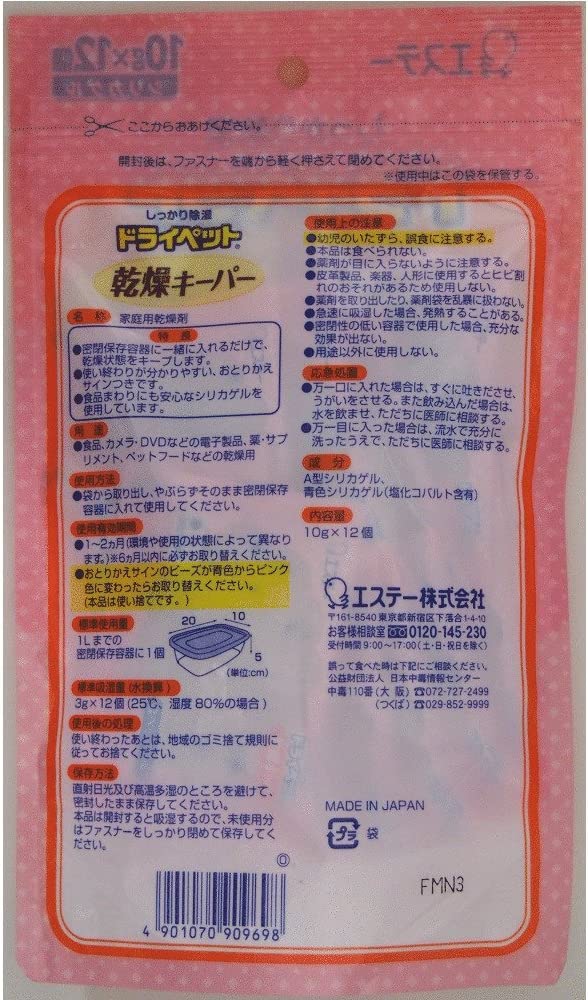 10g×12個
シリカゲル
エステー
ここからおあけください。
開封後は、ファスナーを端から軽く押さえて閉めてください。
※使用中はこの袋を保管する。
しっかり除湿
ドライペット
乾燥キーパー
名称 家庭用乾燥剤
特長
●密閉保存容器に一緒に入れるだけで、
乾燥状態をキープします。
●使い終わりが分かりやすい、おとりかえ
サインつきです。
●食品まわりにも安心なシリカゲルを
使用しています。
用途
●食品、カメラ・DVDなどの電子製品、薬・サプ
リメント、ペットフードなどの乾燥用
使用方法
●袋から取り出し、やぶらずそのまま密閉保存
容器に入れて使用してください。
使用有効期間
●1~2ヵ月(環境や使用の状態によって異なり
ます。)※6ヵ月以内に必ずお取り替えください。
●おとりかえサインのビーズが青色からピンク
色に変わったらお取り替えください。
(本品は使い捨てです。)
標準使用量
1Lまでの
密閉保存容器に1個
20
10
5
(単位:cm)
標準吸湿量(水換算)
3g×12個(25℃、湿度80%の場合)
使用後の処理
使い終わったあとは、地域のゴミ捨て規則に
従ってお捨てください。
保存方法
直射日光及び高温多湿のところを避けて、
密封したまま保存してください。
本品は開封すると吸湿するので、未使用分
はファスナーをしっかり閉めて保存してくだ
さい。
4 901070 909698
使用上の注意
●幼児のいたずら、誤食に注意する。
●本品は食べられない。
●薬剤が目に入らないように注意する。
●皮革製品、楽器、人形に使用するとヒビ割
れのおそれがあるため使用しない。
●薬剤を取り出したり、薬剤袋を乱暴に扱わない。
●急速に吸湿した場合、発熱することがある。
●密閉性の低い容器で使用した場合、充分な
効果が出ない。
●用途以外に使用しない。
応急処置
●万一口に入れた場合は、すぐに吐きださせ、
うがいをさせる。また飲み込んだ場合は、
水を飲ませ、ただちに医師に相談する。
●万一目に入った場合は、流水で充分に
洗ったうえで、ただちに医師に相談する。
成分
A型シリカゲル、
青色シリカゲル(塩化コバルト含有)
内容量
10g×12個
エステー株式会社
〒161-8540 東京都新宿区下落合1-4-10
お客様相談室 0120-145-230
受付時間 9:00~17:00(土・日・祝日を除く)
誤って食べた時は下記にご相談ください。
公益財団法人 日本中毒情報センター
中毒110番(大阪)☎072-727-2499
(つくば)☎029-852-9999
MADE IN JAPAN
プラ 袋
FMN3